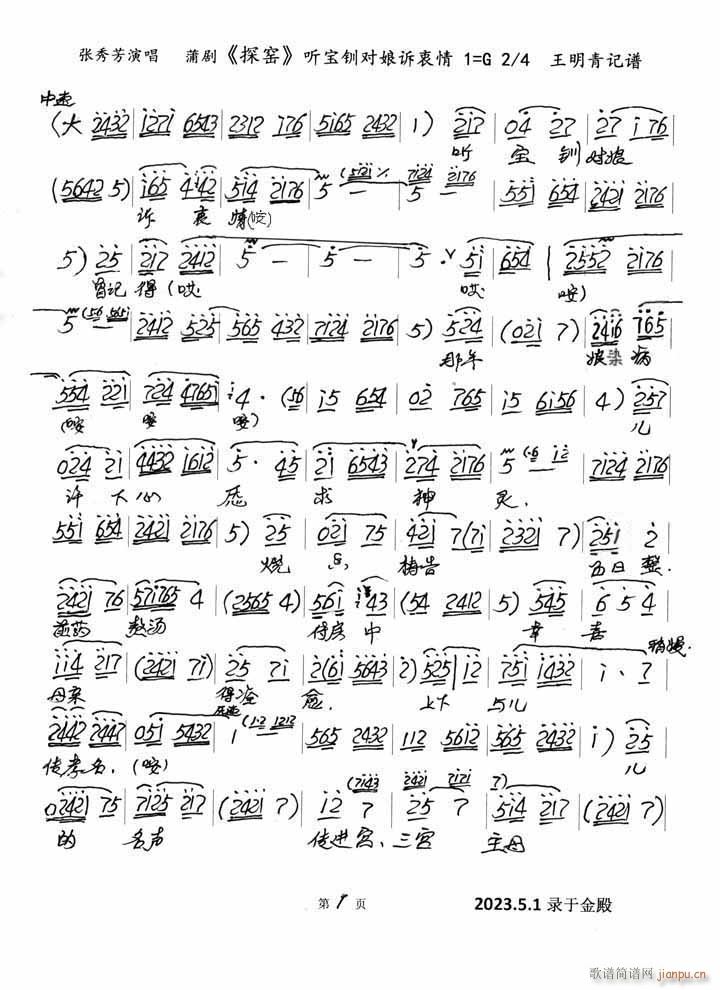 张秀芳演唱 蒲剧《探窑》听宝钏对娘诉衷情 1=G 2/4 王明青记谱
中速
(大 2432 1271 6543 2312 176 5165 2432 1) 217 04 27 27 176
听 宝 钏 对娘
(5642 5) 165 4142 514 2176 5 — 5 — 551 654 2421 2176
诉 衷 情(哎)
5) 25 217 2412 5 — 5 — 5 · 51 654 2552 2176
曾记 得(哎 哎 哎)
5 2412 525 565 432 7124 2176 5) 524 (021 7) 2416 7655
那年 娘染病
554 221 724 47651 4 · (56 15 654 02 765 15 6156 4) 257
(哎 哎 哎) 儿
024 21 4432 1612 5 · 45 21 6543 274 2176 5 7124 2176
许 大 心 愿 求 神 灵.
551 654 2421 2176 5) 25 021 75 421 7(71 2321 7) 251 2
烧 祷告 百日 整.
2421 76 571765 4 (2565 4) 561 43 (54 2412 5) 545 6 5 4
煎药 熬汤 待房 中 幸 喜
114 217 (2421 71) 25 71 2(61 5643 2) 525 12 751 1432 1 · 7
母亲 得痊 愈. 上下 与儿
2442 2447 051 5432 1 565 2432 112 5612 565 2432 1) 25
传孝名.(哎) 儿
02421 75 7125 217 (2421 7) 12 7 25 7 514 217 (2421 7)
的 名声 传进宫、三宫 主母
第 1 页
2023.5.1 录于金殿
歌谱简谱网
jianpu.cn